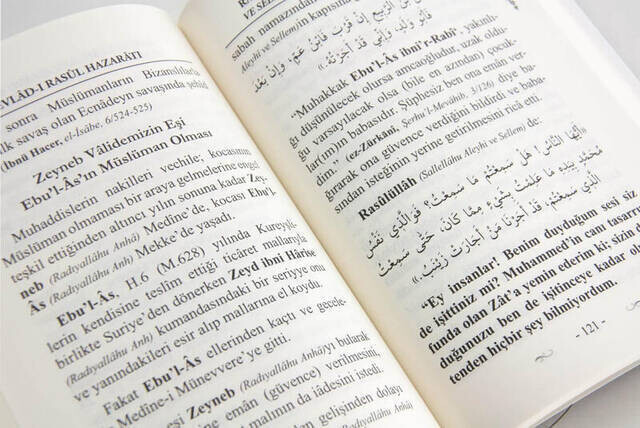 EVLÂD-I RASÛL HAZARÂTI
sonra Müslümanların Bizanslılarla
ilk savaş olan Ecnâdeyn savaşında şehid
(İbnü Hacer, el-İsâbe, 6/524-525)
Zeyneb Vâlidemizin Eşi
Ebu'l-Âs'ın Müslüman Olması
Muhaddislerin nakilleri vechile; kocasının
Müslüman olmaması bir araya gelmelerine engel
teşkil ettiğinden altıncı yılın sonuna kadar Zey-
neb (Radıyallâhu Anhâ) Medîne'de, kocası Ebu'l-
Âs (Radıyallâhu Anh) Mekke'de yaşadı.
Ebu'l-Âs, H.6 (M.628) yılında Kureyşli-
lerin kendisine teslim ettiği ticâret mallarıyla
birlikte Suriye'den dönerken Zeyd ibni Hârise
(Radıyallâhu Anh) kumandasındaki bir seriyye onu
ve yanındakileri esir alıp mallarına el koydu.
Fakat Ebu'l-Âs ellerinden kaçtı ve gecele-
Medîne-i Münevvere'ye gitti.
eşi Zeyneb (Radıyallâhu Anhâ)yı bularak
emân (güvence) verilmesini,
malının da iâdesini istedi.
gelişinden dolayı
(Radıyallâhu Anhâ)
VE SELLEM
sabah namazından
Aleyhi ve Sellem)in kapısına
"Muhakkak Ebu'l-Âs ibni'r-Rabî', yakınlı-
ğı düşünülecek olursa amcaoğludur, uzak oldu-
ğu varsayılacak olsa (bile en azından) çocuk-
lar(ım)ın babasıdır. Şüphesiz ben ona emân ver-
dim." (ez-Zürkânî, Şerhu'l-Mevâhib, 3/126) diye
ğırarak ona güvence verdiğini bildirdi ve baba-
sından isteğinin yerine getirilmesini rica etti.
Rasûlüllâh (Sallellâhu Aleyhi ve Sellem) de:
«أَيُّهَا النَّاسُ! هَلْ سَمِعْتُمْ مَا سَمِعْتُ؟ فَوَالَّذِي نَفْسُ
مُحَمَّدٍ بِيَدِهِ مَا عَلِمْتُ بِشَيْءٍ مِمَّا كَانَ، حَتَّى سَمِعْتُ
"Ey insanlar! Benim duyduğum sesi siz
de işittiniz mi? Muhammed'in canı tasarru-
funda olan Zât'a yemin ederim ki; sizin duy-
duğunuzu ben de işitinceye kadar olan
tenden hiçbir şey bilmiyordum.
- 121 -